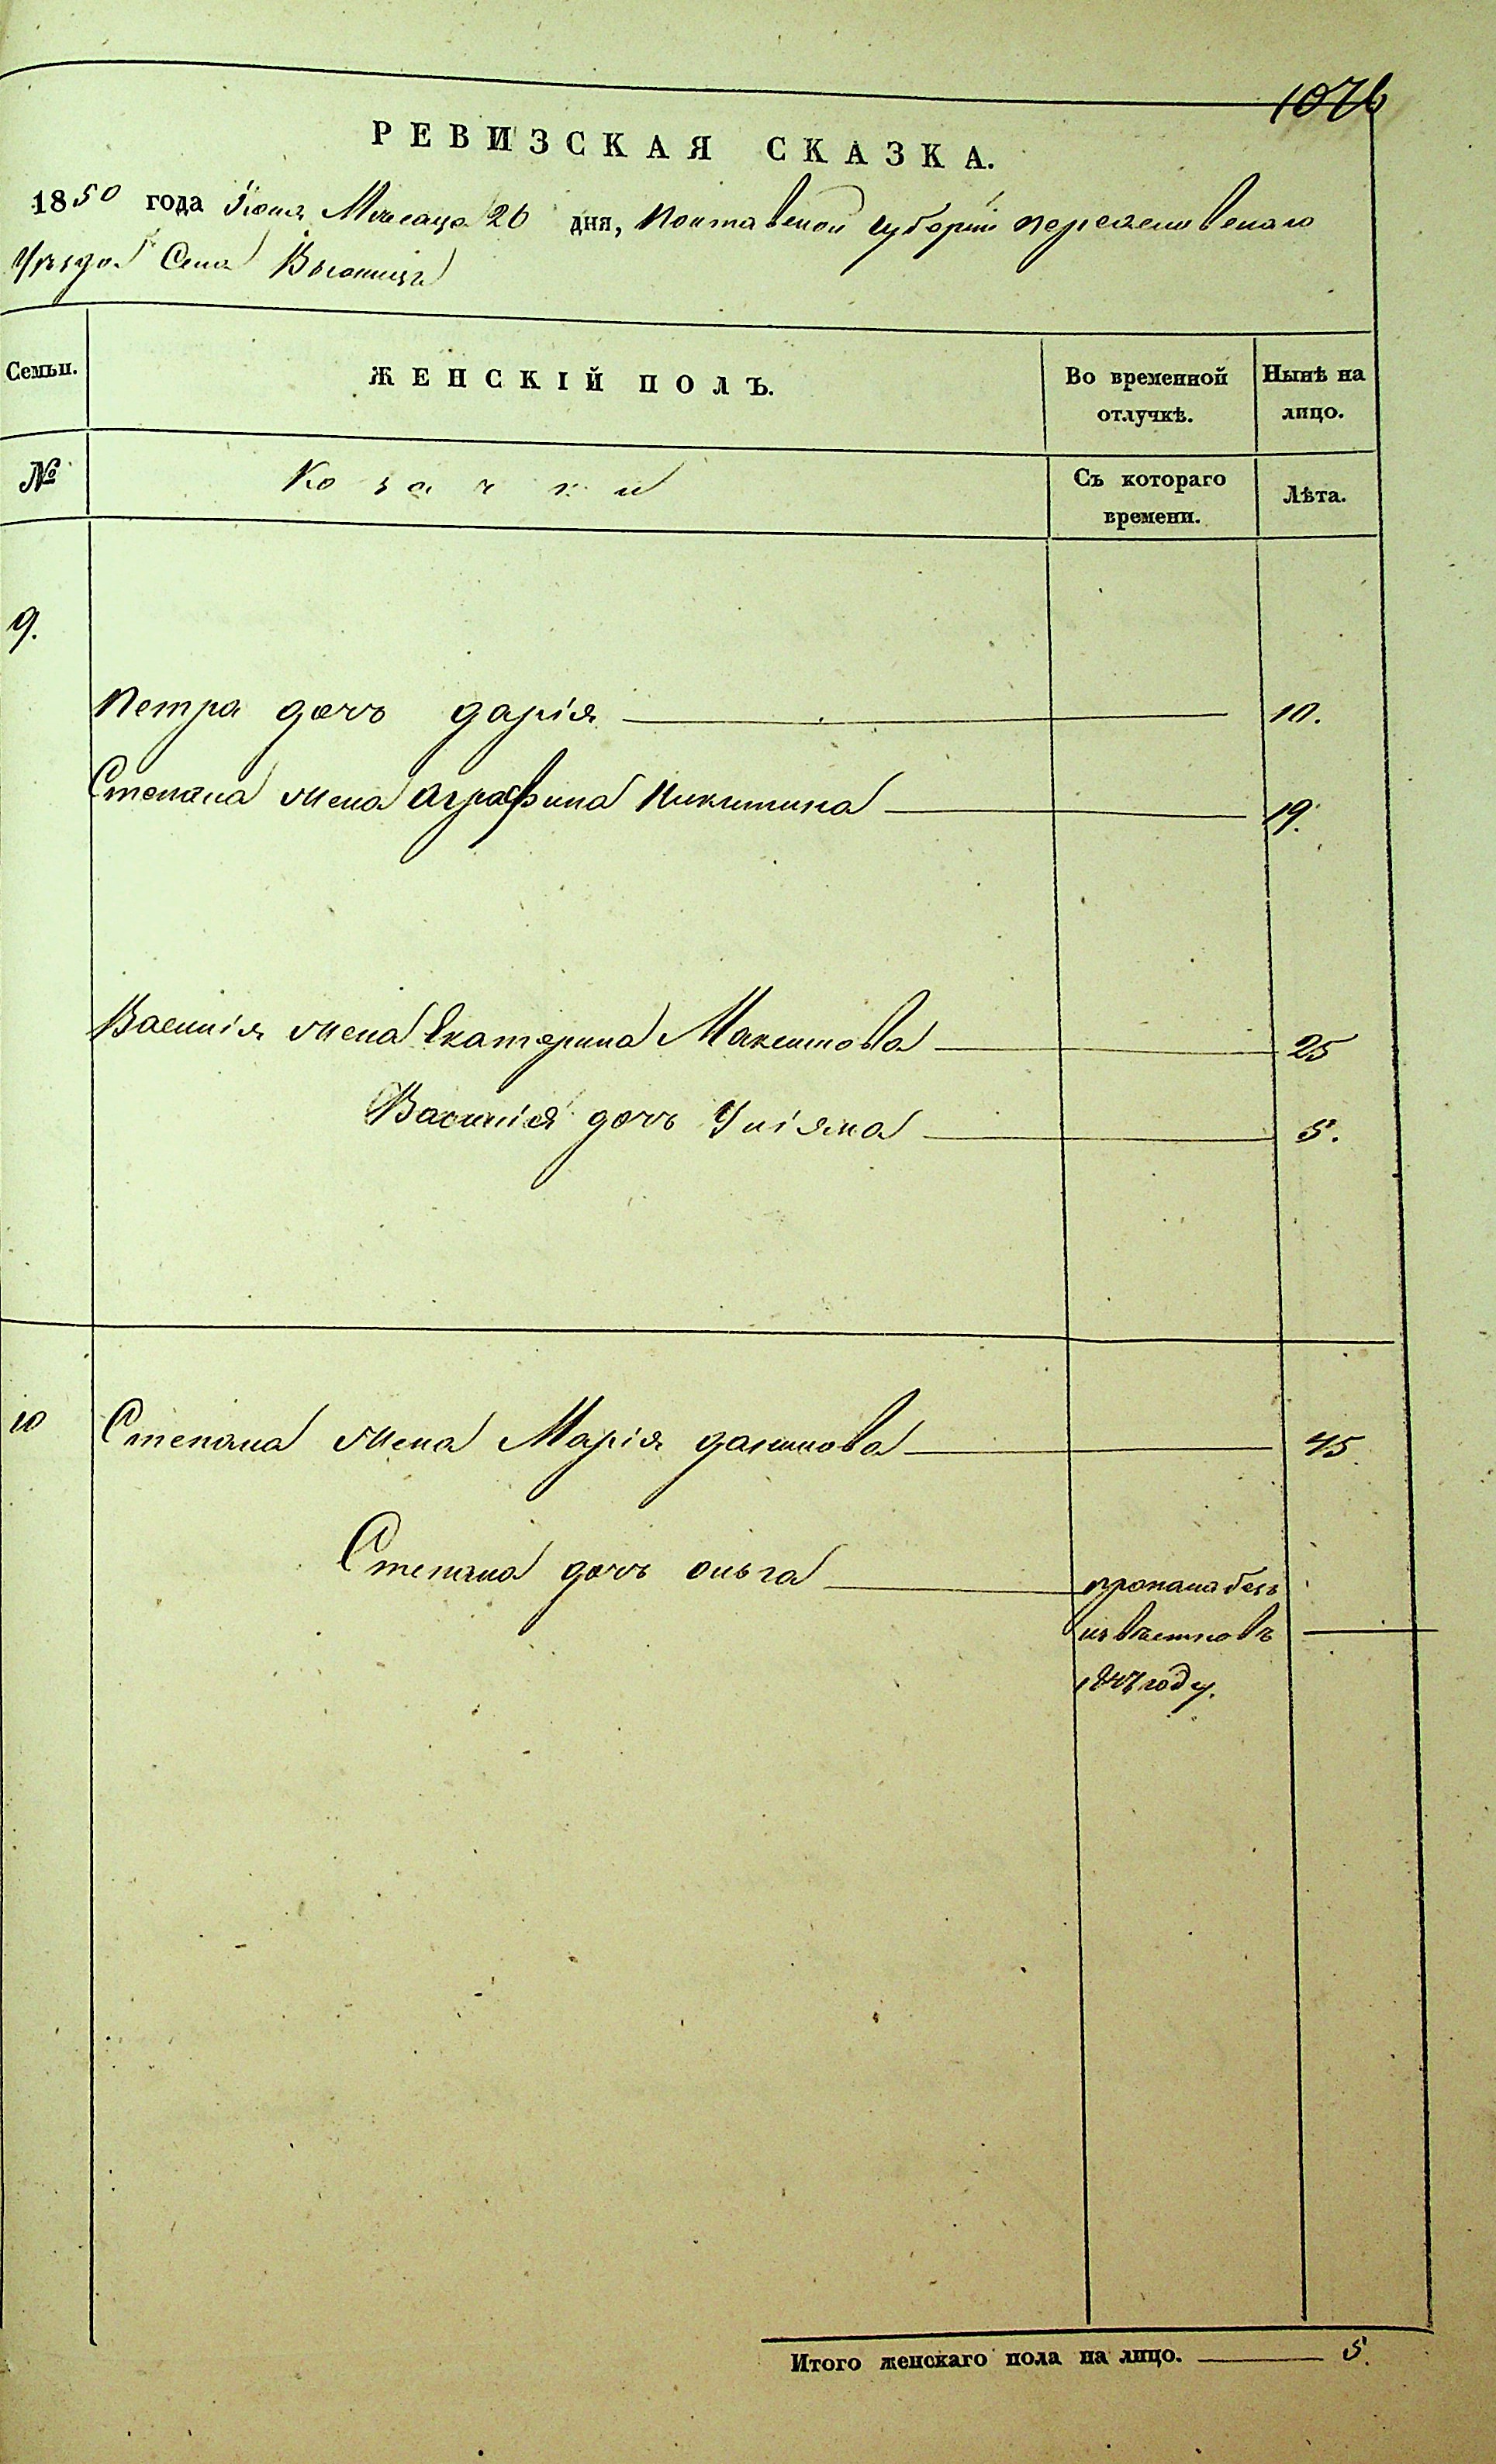 1076
РЕВИЗСКАЯ СКАЗКА.
1850 года Іюня Мѣсяца 26 дня, Полтавской губерніи переяславскаго
Уѣзда Села
Семьи. ЖЕНСКІЙ ПОЛЪ. Во временной отлучкѣ. Нынѣ на лицо.
№ Козачки Съ котораго времени. Лѣта.
9.
Петра дочь дарія 10.
Степана жена аграфина Никитина 19.
Василія жена Екатерина Максимова 25
Василія дочь Уліяна 5.
10 Степана жена Марія данилова 45
Степана дочь ольга пропала безъ
извѣстновъ
1847 году.
Итого женскаго пола на лицо. 5.